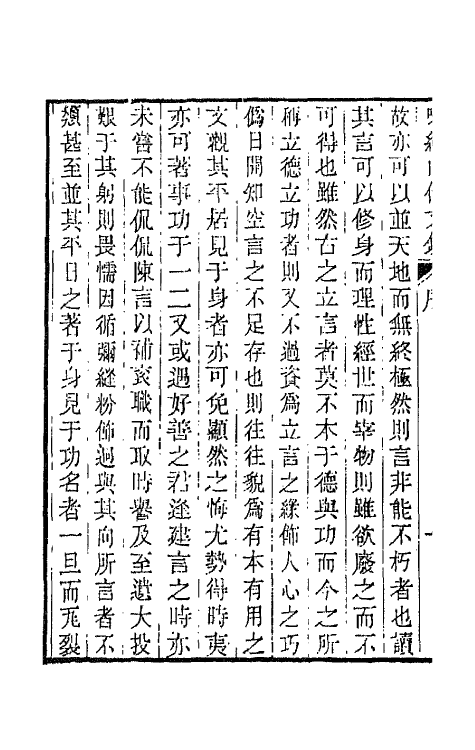 故亦可以並天地而無終極然則言非能不朽者也讀
其言可以修身而理性經世而宰物則雖欲廢之而不
可得也雖然古之立言者莫不本于德與功而今之所
稱立德立功者則又不過資爲立言之緣飾人心之巧
僞日開知空言之不足存也則往往貌爲有本有用之
文觀其平居見于身者亦可免顯然之悔尤勢得時夷
亦可著事功于一二又或遇好善之君逢建言之時亦
未嘗不能侃侃陳言以補袞職而取時譽及至遺大投
艱于其躬則畏懦因循彌縫粉飾迥與其向所言者不
類甚至並其平日之著于身見于功名者一旦而瓦裂